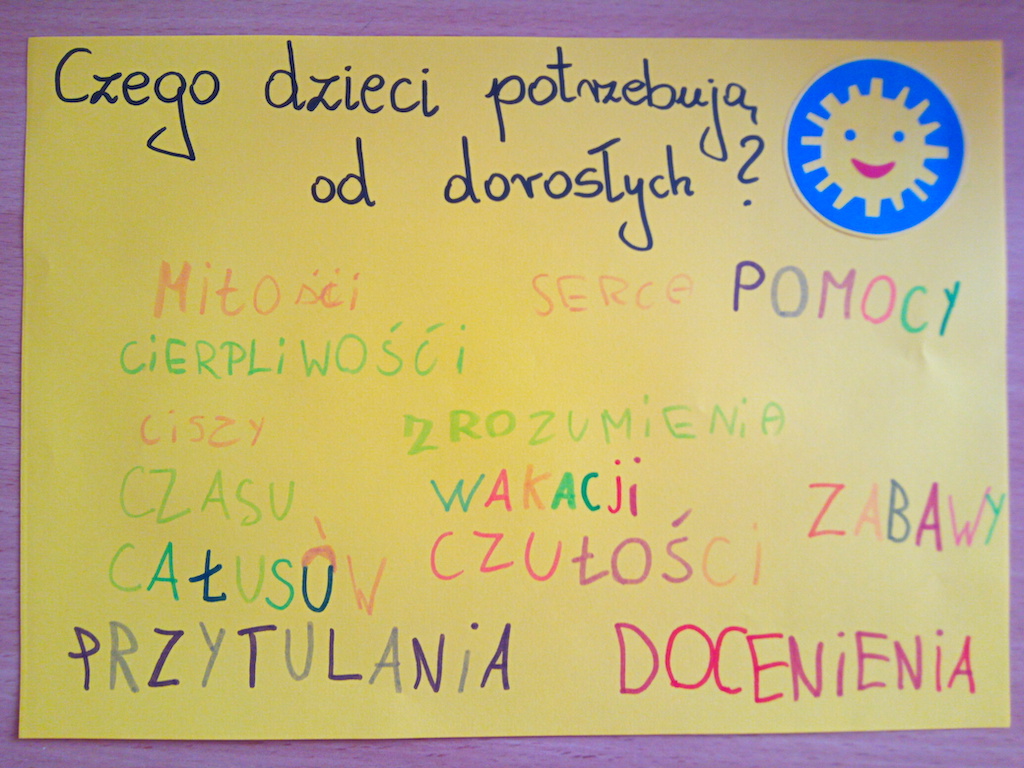 Czego dzieci potrzebują
od dorosłych?
MiŁOśći SERCA POMOCY
CiERPLiWOŚĆi
CiSZY ZROZUMiENiA
CZASU WAKACji ZABAWY
CAŁUSÓW CZUŁOŚCi
PRZYTULANiA DOCENiENiA